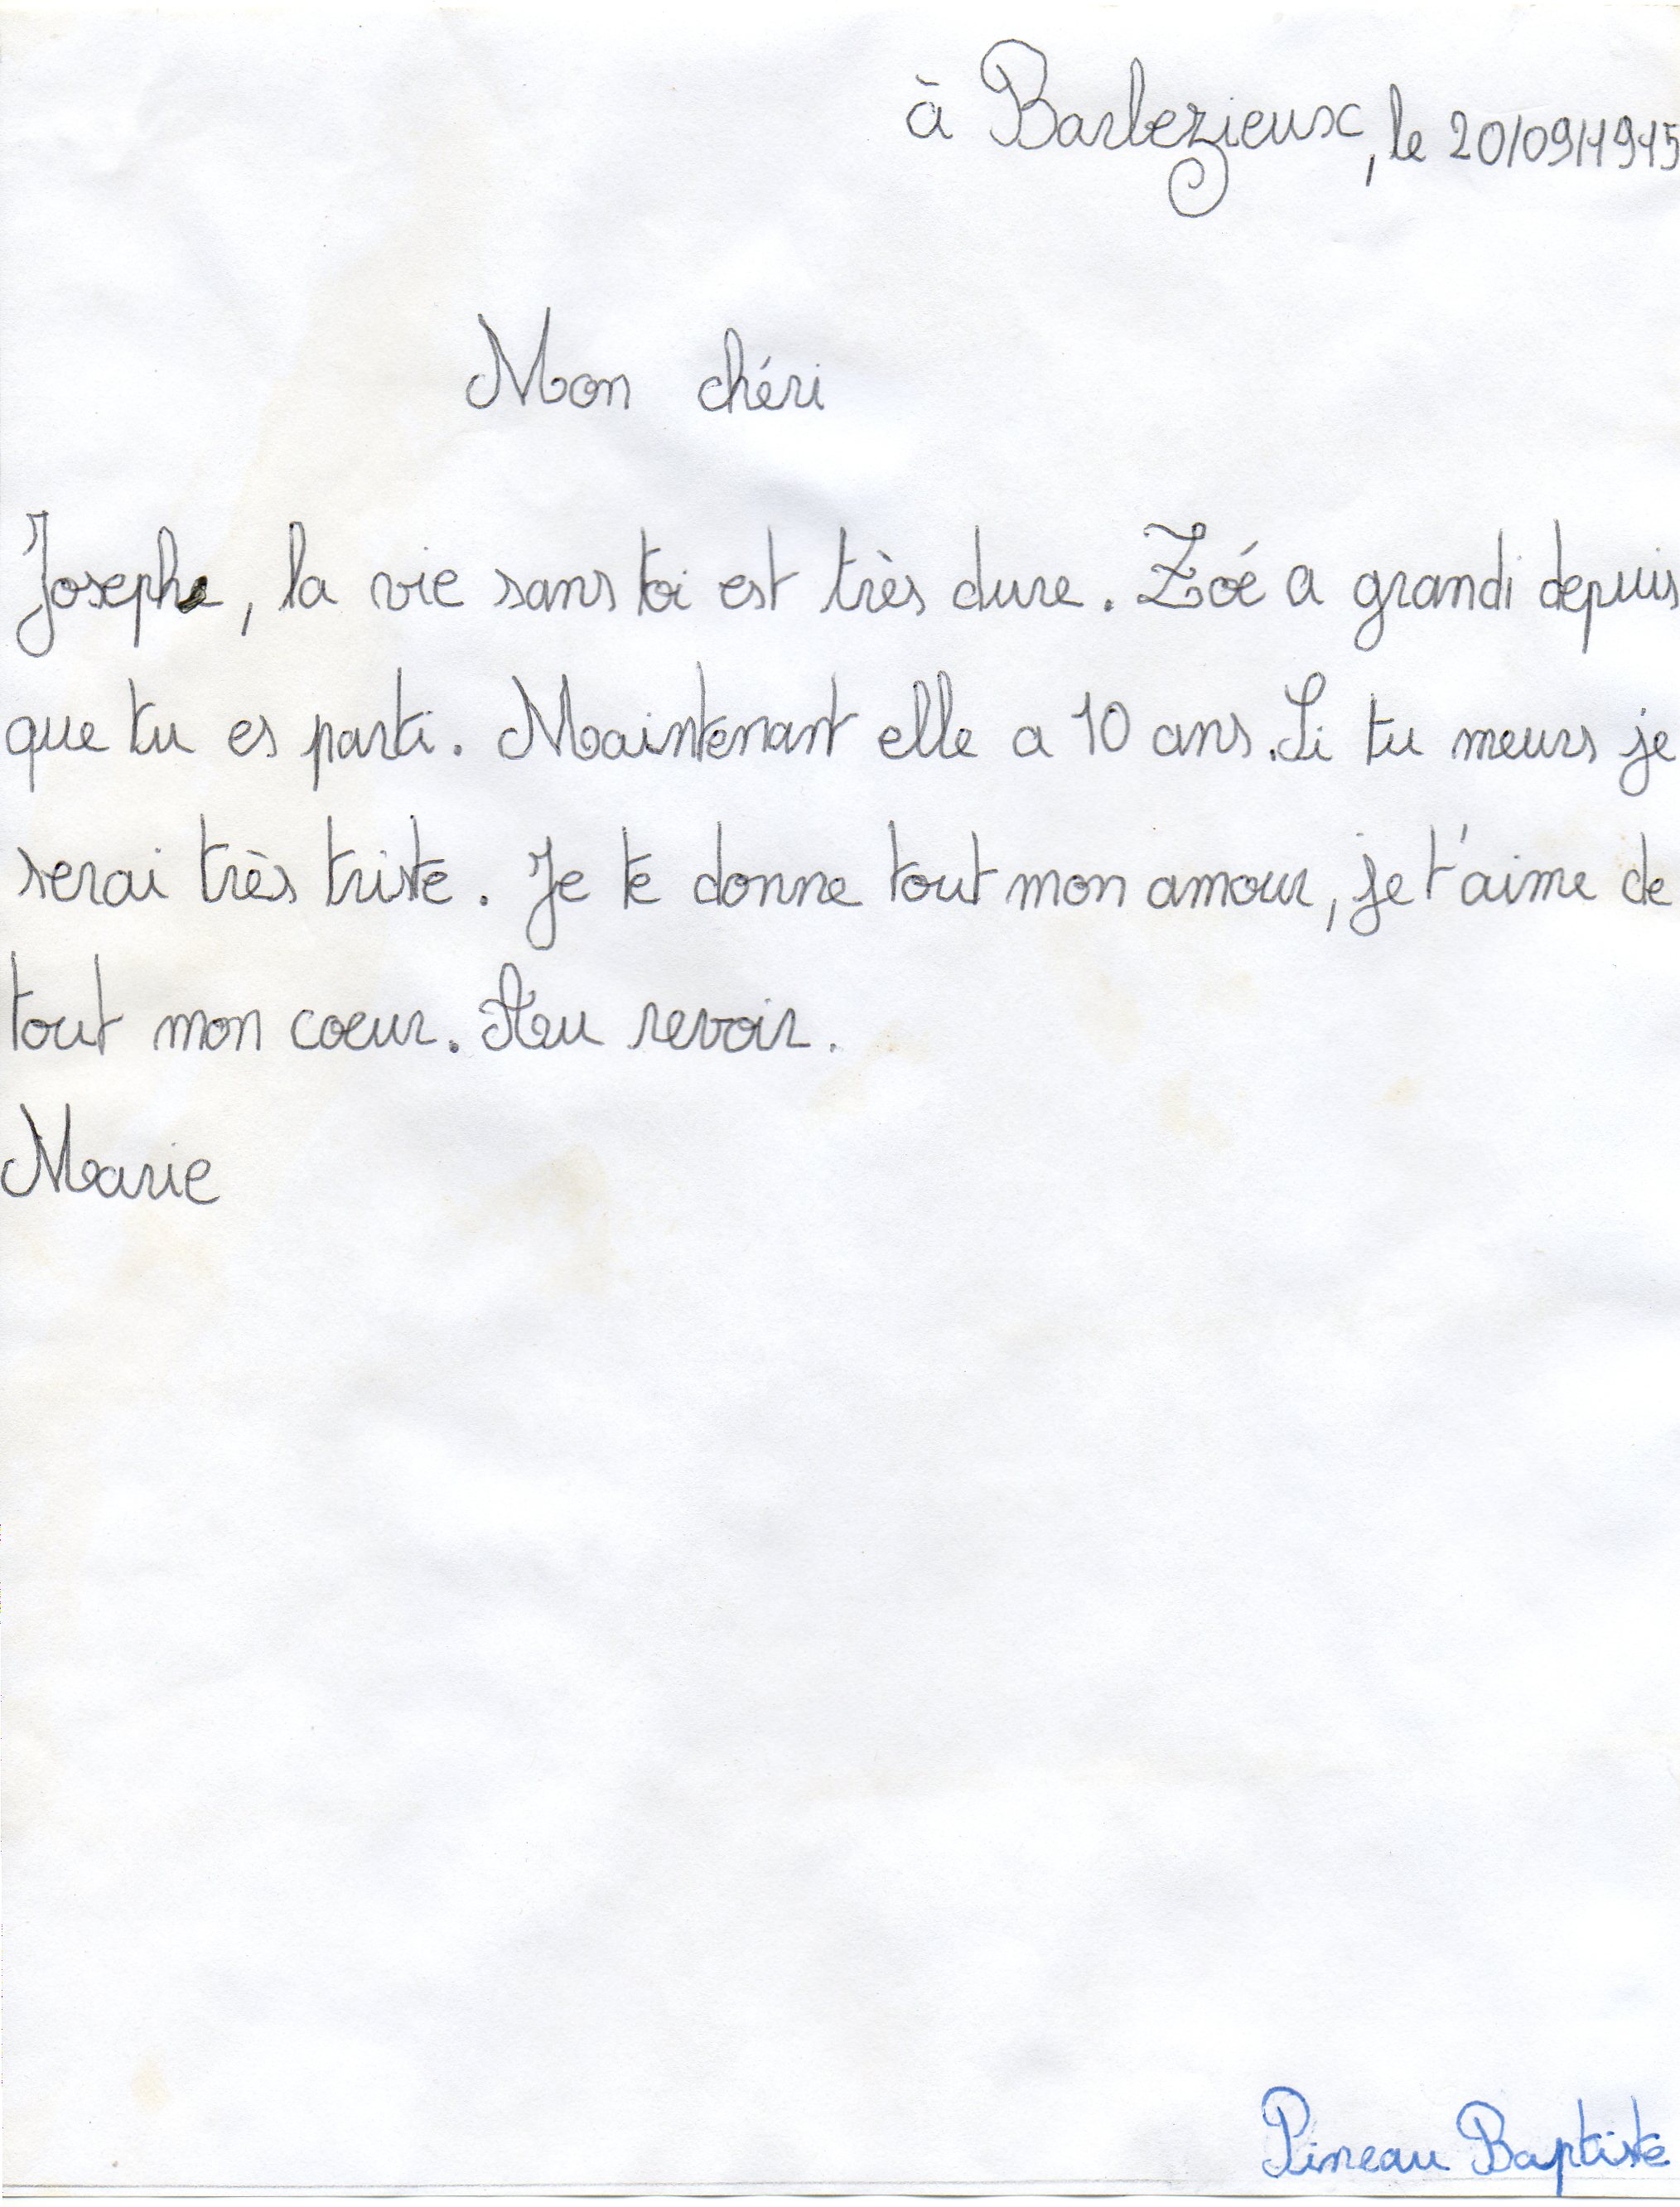 à Barbezieux, le 20/09/1915
Mon chéri
Josephe, la vie sans toi est très dure. Zoé a grandi depuis
que tu es parti. Maintenant elle a 10 ans. Si tu meurs je
serai très triste. Je te donne tout mon amour, je t'aime de
tout mon coeur. Au revoir.
Marie
Pineau Baptiste